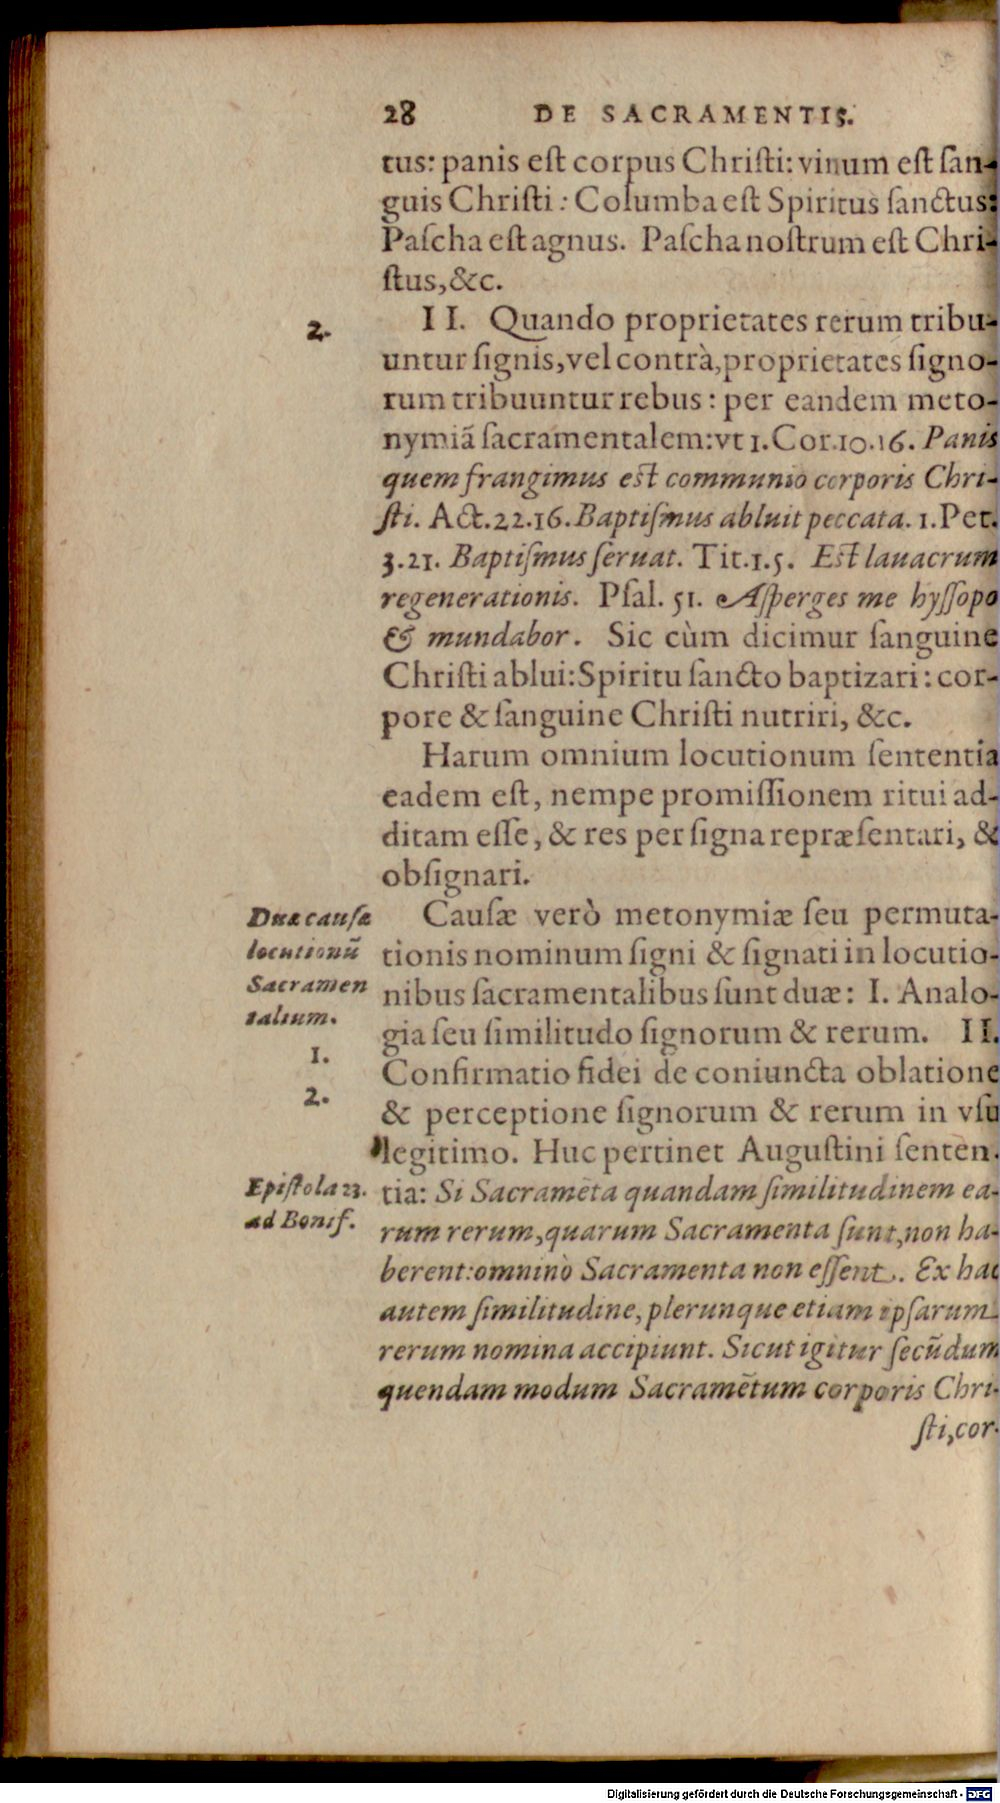 28 DE SACRAMENTIS.
tus: panis eſt corpus Chriſti: vinum eſt ſan-
guis Chriſti: Columba eſt Spiritus ſanctus:
Paſcha eſt agnus. Paſcha noſtrum eſt Chri-
ſtus, &c.
2.
II. Quando proprietates rerum tribu-
untur ſignis, vel contrà, proprietates ſigno-
rum tribuuntur rebus: per eandem meto-
nymiã ſacramentalem: vt 1. Cor. 10. 16. Panis
quem frangimus eſt communio corporis Chri-
ſti. Act. 22. 16. Baptiſmus abluit peccata. 1. Pet.
3. 21. Baptiſmus ſeruat. Tit. 1. 5. Eſt lauacrum
regenerationis. Pſal. 51. Aſperges me hyſſopo
& mundabor. Sic cùm dicimur ſanguine
Chriſti ablui: Spiritu ſancto baptizari: cor-
pore & ſanguine Chriſti nutriri, &c.
Harum omnium locutionum ſententia
eadem eſt, nempe promiſſionem ritui ad-
ditam eſſe, & res per ſigna repræſentari, &
obſignari.
Duæ cauſæ
locutionũ
Sacramen
talium.
1.
2.
Cauſæ verò metonymiæ ſeu permuta-
tionis nominum ſigni & ſignati in locutio-
nibus ſacramentalibus ſunt duæ: I. Analo-
gia ſeu ſimilitudo ſignorum & rerum. II.
Confirmatio fidei de coniuncta oblatione
& perceptione ſignorum & rerum in vſu
legitimo. Huc pertinet Auguſtini ſenten-
Epiſtola 23.
ad Bonif.
tia: Si Sacramẽta quandam ſimilitudinem ea-
rum rerum, quarum Sacramenta ſunt, non ha-
berent: omninò Sacramenta non eſſent. Ex hac
autem ſimilitudine, plerunque etiam ipſarum
rerum nomina accipiunt. Sicut igitur ſecũdum
quendam modum Sacramẽtum corporis Chri-
ſti, cor-
Digitalisierung gefördert durch die Deutsche Forschungsgemeinschaft - DFG